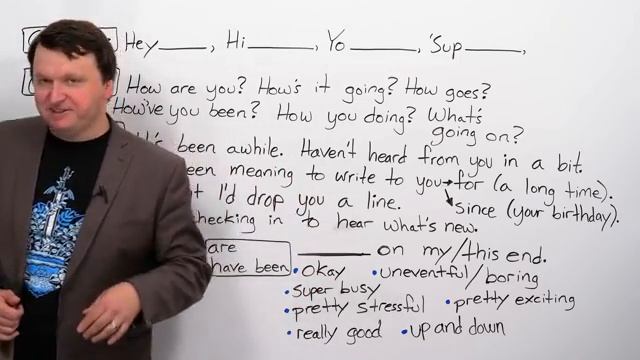 Hey____, Hi____, Yo____, 'Sup____,
How are you? How's it going? How goes?
How've you been? How you doing? What's
going on?
It's been awhile. Haven't heard from you in a bit.
been meaning to write to you → for (a long time).
I'd drop you a line. since (your birthday).
checking in to hear what's new.
are ____ on my/this end.
have been
• okay • uneventful/boring
• super busy
• pretty stressful • pretty exciting
• really good • up and down